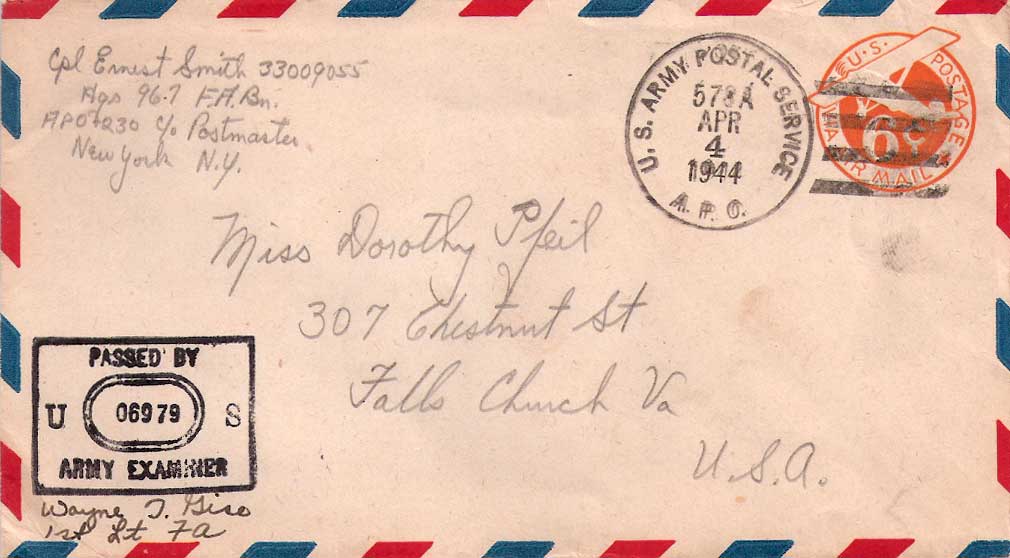 Cpl Ernest Smith 33009055
Hqs 967 F.A. Bn.
APO #230 c/o Postmaster
New York N.Y.
U.S. ARMY POSTAL SERVICE
APR
4
1944
A.P.O.
U.S. POSTAGE
6¢
VIA AIR MAIL
Miss Dorothy Pfeil
307 Chestnut St
Falls Church Va
U.S.A.
PASSED BY
U 06979 S
ARMY EXAMINER
Wayne T.
1st Lt FA